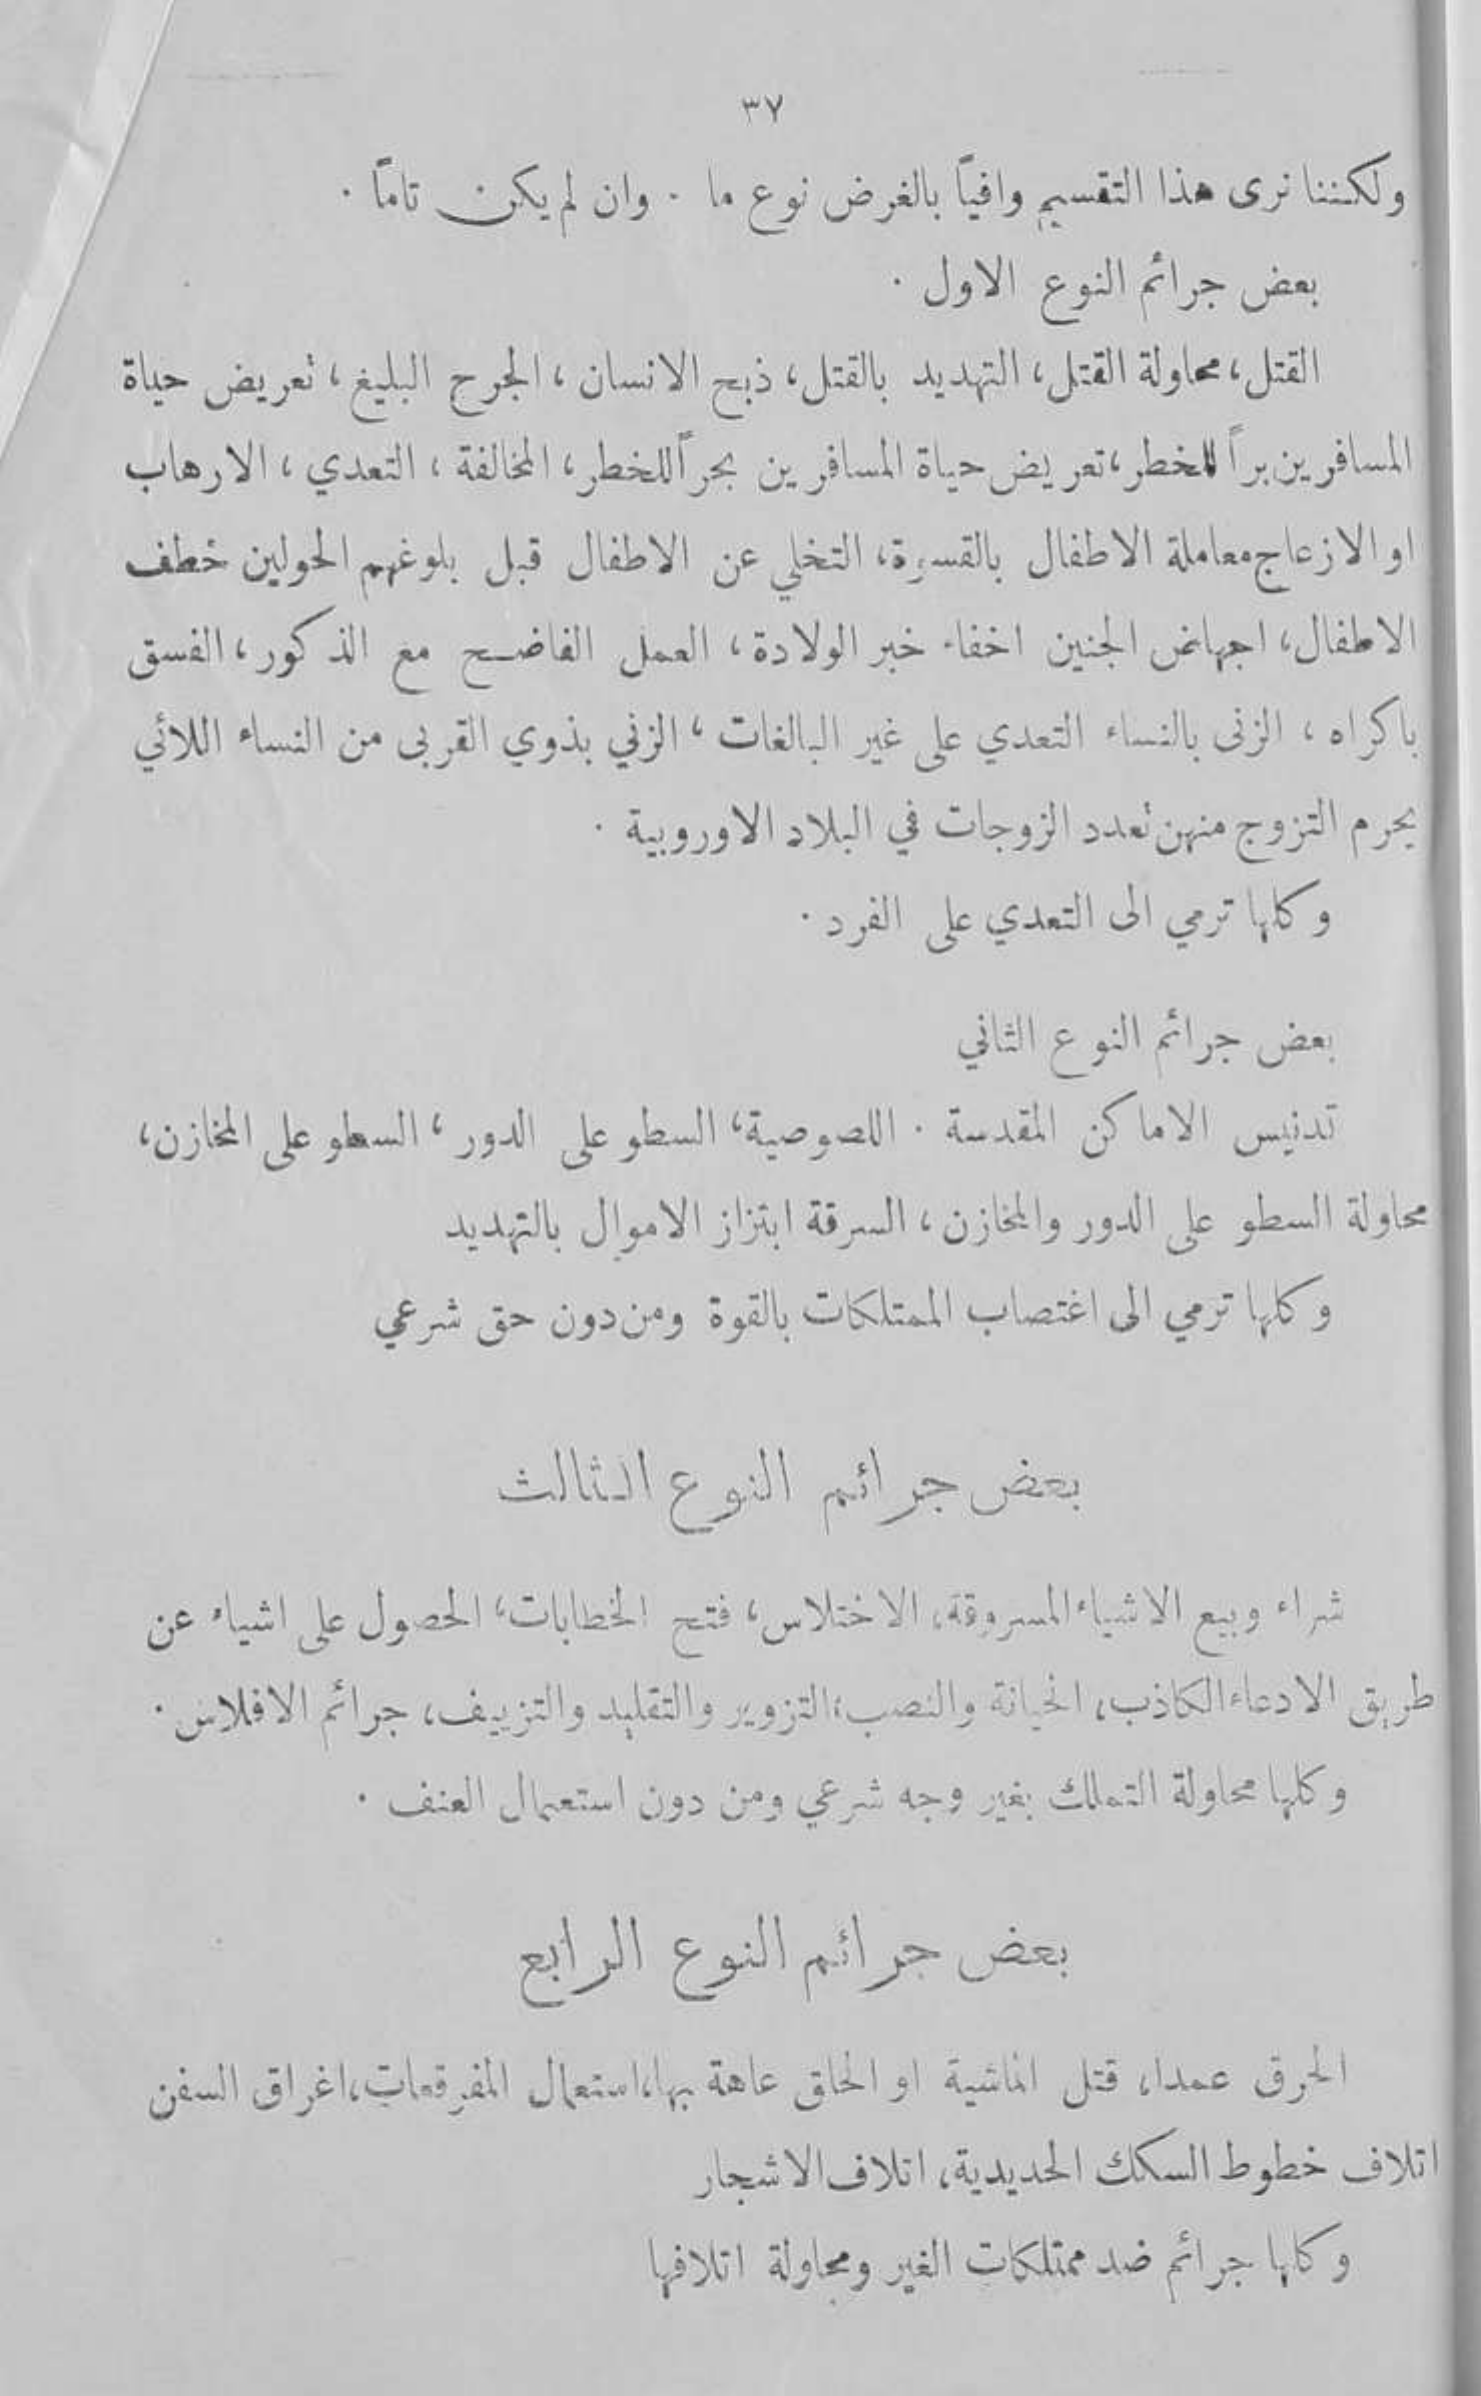 ٣٧
ولكننا نرى هذا التقسيم وافياً بالغرض نوع ما . وان لم يكن تاماً .
بعض جرائم النوع الاول .
القتل، محاولة القتل، التهديد بالقتل، ذبح الانسان، الجرح البليغ، تعريض حياة
المسافرين براً للخطر، تعريض حياة المسافرين بحراً للخطر، المخالفة، التعدي، الارهاب
او الازعاج معاملة الاطفال بالقسوة، التخلي عن الاطفال قبل بلوغهم الحولين خطف
الاطفال، اجهاض الجنين اخفاء خبر الولادة، العمل الفاضح مع الذكور، الفسق
باكراه، الزنى بالنساء التعدي على غير البالغات، الزني بذوي القربى من النساء اللائي
يحرم التزوج منهن تعدد الزوجات في البلاد الاوروبية .
وكلها ترمي الى التعدي على الفرد .
بعض جرائم النوع الثاني
تدنيس الاماكن المقدسة . اللصوصية، السطو على الدور، السطو على المخازن،
محاولة السطو على الدور والمخازن، السرقة ابتزاز الاموال بالتهديد
وكلها ترمي الى اغتصاب الممتلكات بالقوة ومن دون حق شرعي
بعض جرائم النوع الثالث
شراء وبيع الاشياء المسروقة، الاختلاس، فتح الخطابات، الحصول على اشياء عن
طريق الادعاء الكاذب، الخيانة والنصب، التزوير والتقليد والتزييف، جرائم الافلاس .
وكلها محاولة التملك بغير وجه شرعي ومن دون استعمال العنف .
بعض جرائم النوع الرابع
الحرق عمدا، قتل الماشية او الحاق عاهة بها، استعمال المفرقعات، اغراق السفن
اتلاف خطوط السكك الحديدية، اتلاف الاشجار
وكلها جرائم ضد ممتلكات الغير ومحاولة اتلافها